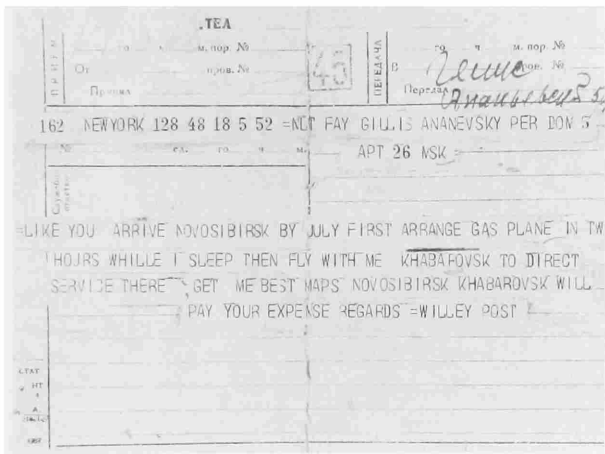 .ТЕЛ
го ч м. пор. №
От пров. №
Принял
ПЕРЕДАЧА
го ч м. пор. №
В пров. №
Передал
162 NEWYORK 128 48 18 5 52 =NLT FAY GILLIS ANANEVSKY PER DOM 5
№ сл. го ч м.
APT 26 MSK =
=LIKE YOU ARRIVE NOVOSIBIRSK BY JULY FIRST ARRANGE GAS PLANE IN TW
HOJRS WHILLE I SLEEP THEN FLY WITH ME KHABAFOVSK TO DIRECT
SERVICE THERE GET ME BEST MAPS NOVOSIBIRSK KHABAROVSK WILL
PAY YOUR EXPENSE REGARDS =WILLEY POST